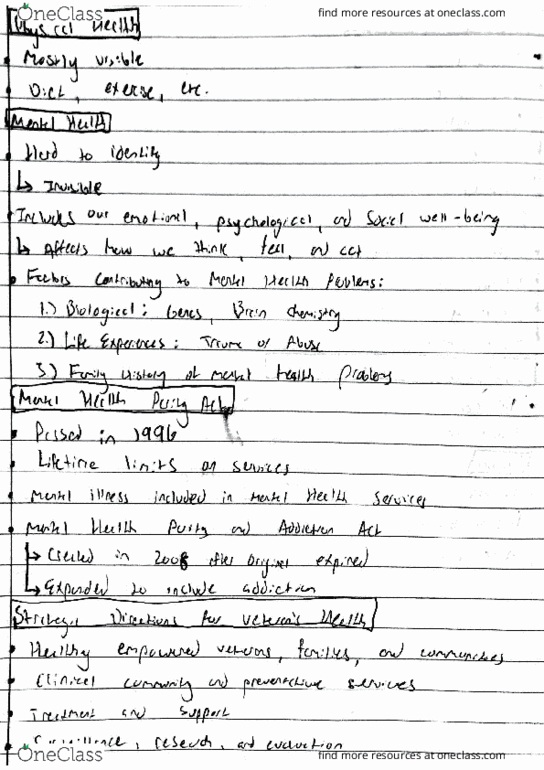 OneClass find more resources at oneclass.com
Physical Health
• Mostly visible
• Diet, exercise, etc.
Mental Health
• Hard to identify
↳ Invisible
• Includes our emotional, psychological, and social well-being
↳ Affects how we think, feel, and act
• Factors contributing to Mental Health Problems:
1.) Biological: Genes, Brain chemistry
2.) Life Experiences: Trauma or Abuse
3) Family History of mental health problems
Mental Health Parity Act
• Passed in 1996
• Lifetime limits on services
• Mental illness included in Mental Health Services
• Mental Health Parity and Addiction Act
↳ Created in 2008 after original expired
↳ Expanded to include addiction
Strategic Directions for Veteran's Health
• Healthy empowered veterans, families, and communities
• Clinical community and preventative services
• Treatment and Support
• Surveillance, research, and evaluation
OneClass find more resources at oneclass.com